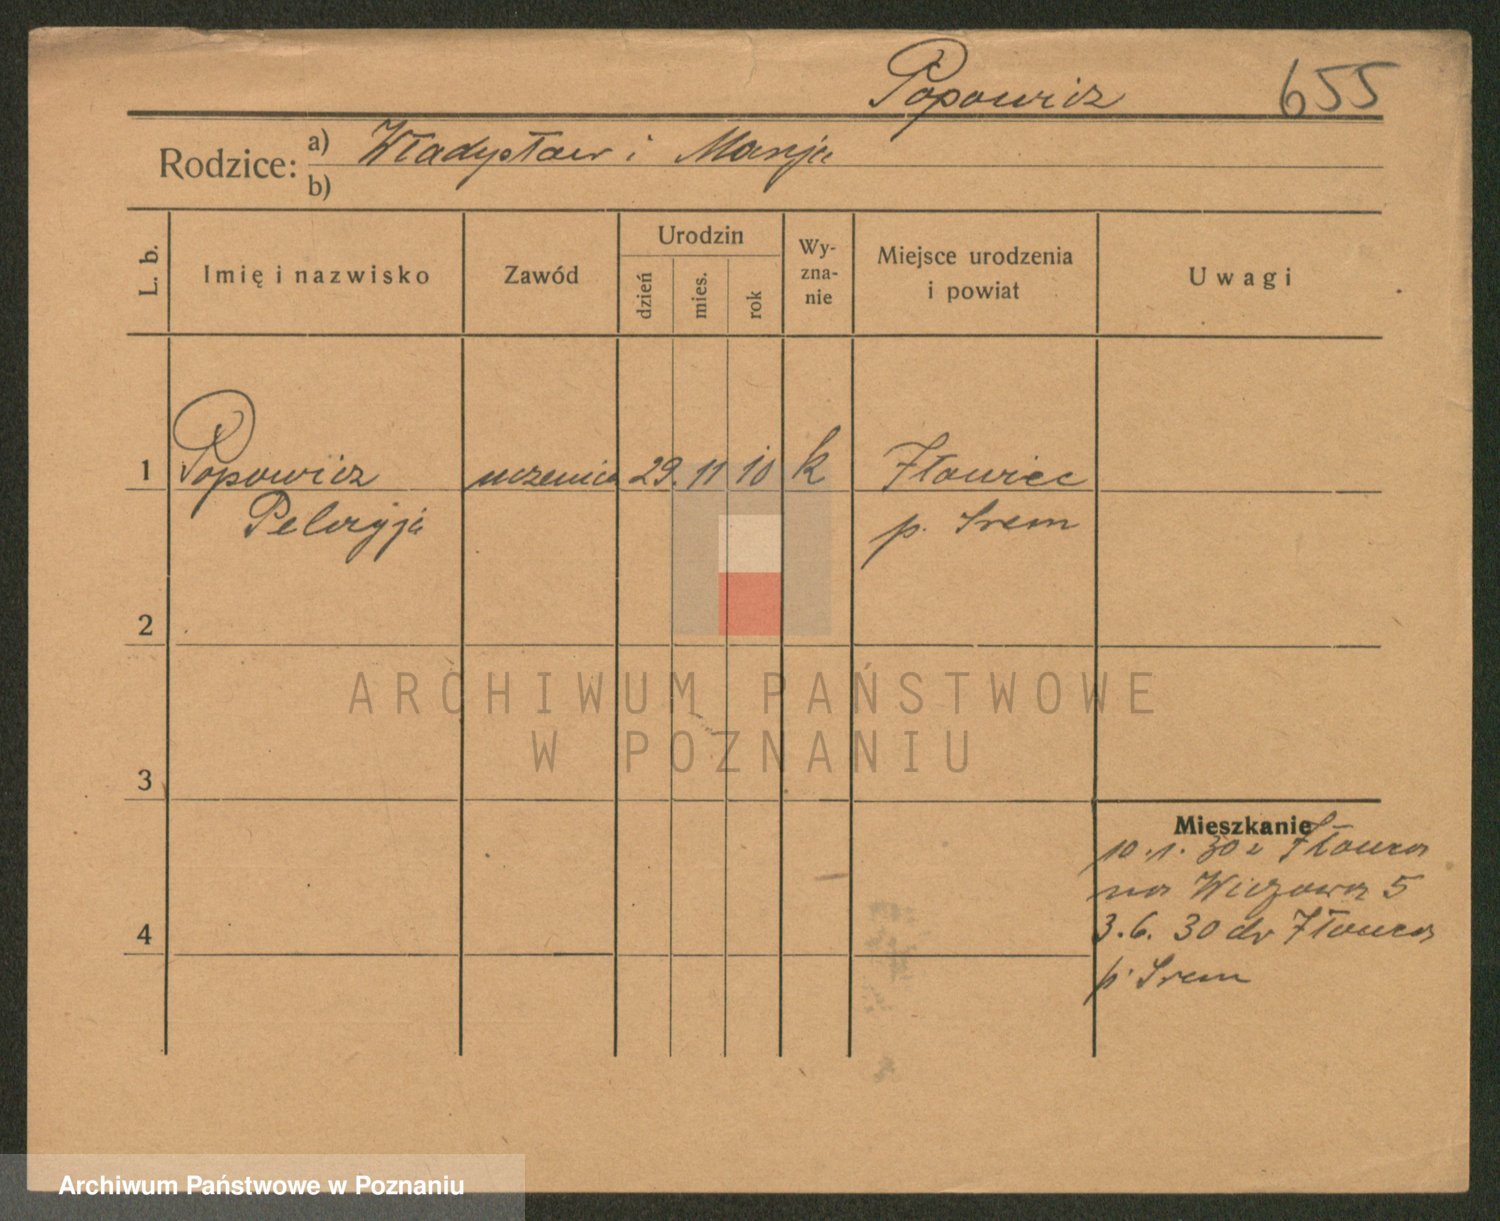 Popowicz 655
Rodzice: a) Władysław i Marja
b)
L. b. Imię i nazwisko Zawód Urodzin dzień mies. rok Wy-zna-nie Miejsce urodzenia i powiat Uwagi
1 Popowicz uczenica 29. 11 10 k Iłowiec
Pelagja p. Śrem
2
ARCHIWUM PAŃSTWOWE
W POZNANIU
3
Mieszkanie
10.1.30 z Iłowca
na
4 3.6.30 do Iłowca
p. Śrem
Archiwum Państwowe w Poznaniu